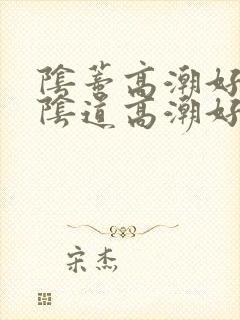 陰蒂高潮好
陰道高潮好
宋杰